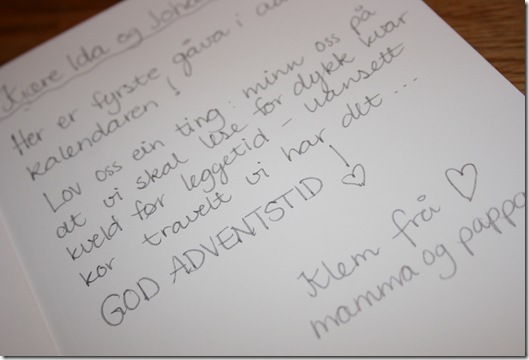 Kjære Ida og Johan
Her er fyrste gåva i
kalendaren!
Lov oss ein ting: minn oss på
at vi skal lese for dykk kvar
kveld før leggetid - uansett
kor travelt vi har det...
GOD ADVENTSTID! ♡
Klem frå ♡
mamma og pappa